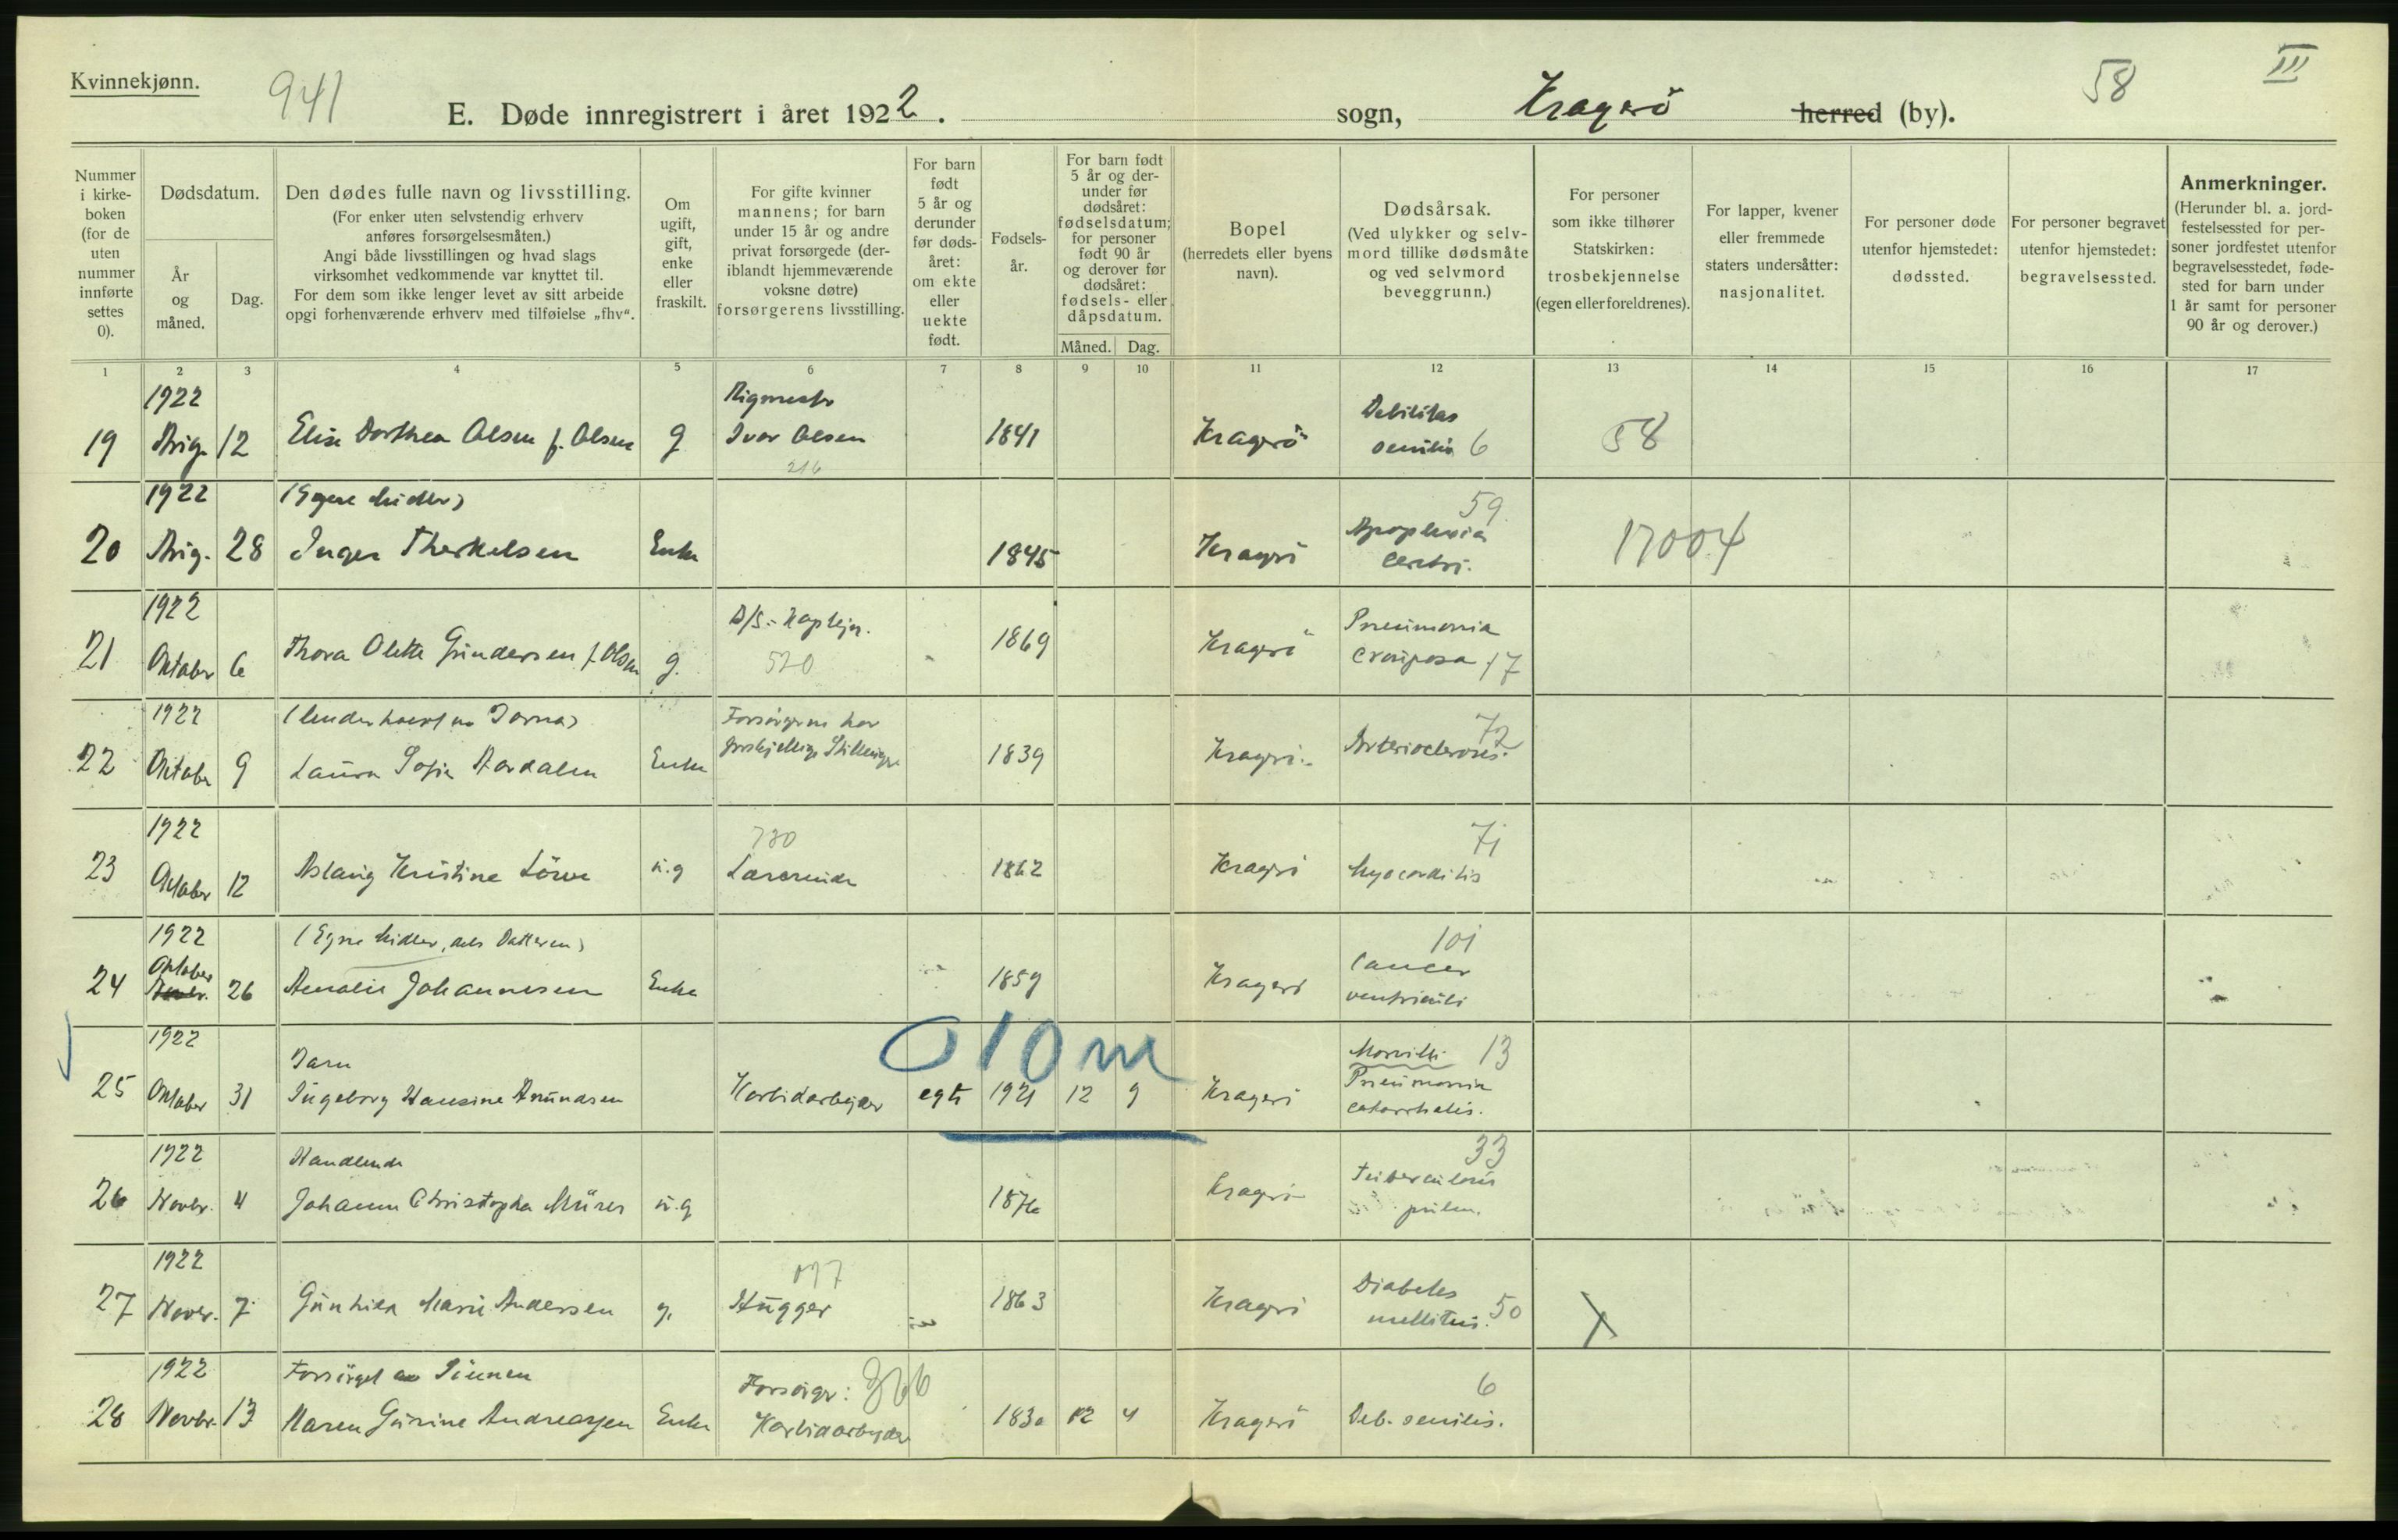 Kvinnekjønn.
941
58
III
E. Døde innregistrert i året 1922. sogn, Kragerö herred (by).
Nummer i kirkeboken (for de uten nummer innførte settes 0).
Dødsdatum.
År og måned.
Dag.
Den dødes fulle navn og livsstilling.
(For enker uten selvstendig erhverv anføres forsørgelsesmåten.)
Angi både livsstillingen og hvad slags virksomhet vedkommende var knyttet til.
For dem som ikke lenger levet av sitt arbeide opgi forhenværende erhverv med tilføielse „fhv“.
Om ugift, gift, enke eller fraskilt.
For gifte kvinner mannens; for barn under 15 år og andre privat forsørgede (deriblandt hjemmeværende voksne døtre) forsørgerens livsstilling.
For barn født 5 år og derunder før dødsåret: om ekte eller uekte født.
Fødselsår.
For barn født 5 år og derunder før dødsåret: fødselsdatum; for personer født 90 år og derover før dødsåret: fødsels- eller dåpsdatum.
Måned.
Dag.
Bopel
(herredets eller byens navn).
Dødsårsak.
(Ved ulykker og selvmord tillike dødsmåte og ved selvmord beveggrunn.)
For personer som ikke tilhører Statskirken: trosbekjennelse (egen eller foreldrenes).
For lapper, kvener eller fremmede staters undersåtter: nasjonalitet.
For personer døde utenfor hjemstedet: dødssted.
For personer begravet utenfor hjemstedet: begravelsessted.
Anmerkninger.
(Herunder bl. a. jordfestelsessted for personer jordfestet utenfor begravelsesstedet, fødested for barn under 1 år samt for personer 90 år og derover.)
1 2 3 4 5 6 7 8 9 10 11 12 13 14 15 16 17
1922 Rigmester Debilitas
19 Aug. 12 Elise Dorthea Olsen f. Olsen g Ivar Olsen 1841 Kragerö senilis 6 58
216
1922 (Egne Midler) 59
20 Aug. 28 Inger Therkelsen Enke 1845 Kragerö Apoplexia cerebri. 17004
1922 D/S.-Kaptejn. Pneumonia
21 Oktober 6 Thora Olette Gundersen f. Olsen g. 520 1869 Kragerö crouposa 17
1922 (Underholdt av Børna) Forsörgerne har 72
22 Oktober 9 Laura Sofie Aardalen Enke forskjellige Stillinger 1839 Kragerö. Arteriosclerosis.
1922 780 71
23 Oktober 12 Aslaug Kristine Lörve u.g Lærerinde 1862 Kragerö Myocarditis
1922 (Egne Midler, dels Datteren) 101
Oktober Cancer
24 26 Amalie Johannesen Enke 1859 Kragerö ventriculi
010 m
1922 Barn Morbilli 13
25 Oktober 31 Ingeborg Hansine Amundsen Karbidarbejder egte 1921 12 9 Kragerö Pneumonia catarrhalis.
1922 Handlende 33
26 Novbr. 4 Johanne Christopha Mürer u.g 1876 Kragerö Tuberculosis pulm.
1922 077 Diabetes
27 Novbr. 7 Gunhild Marie Andersen g. Hugger 1863 Kragerö mellitus. 50
1922 Forsörget av Sönnen Forsörger: 366 6
28 Novbr. 13 Maren Gurine Andreassen Enke Karbidarbejder 1830 12 4 Kragerö Deb. senilis.